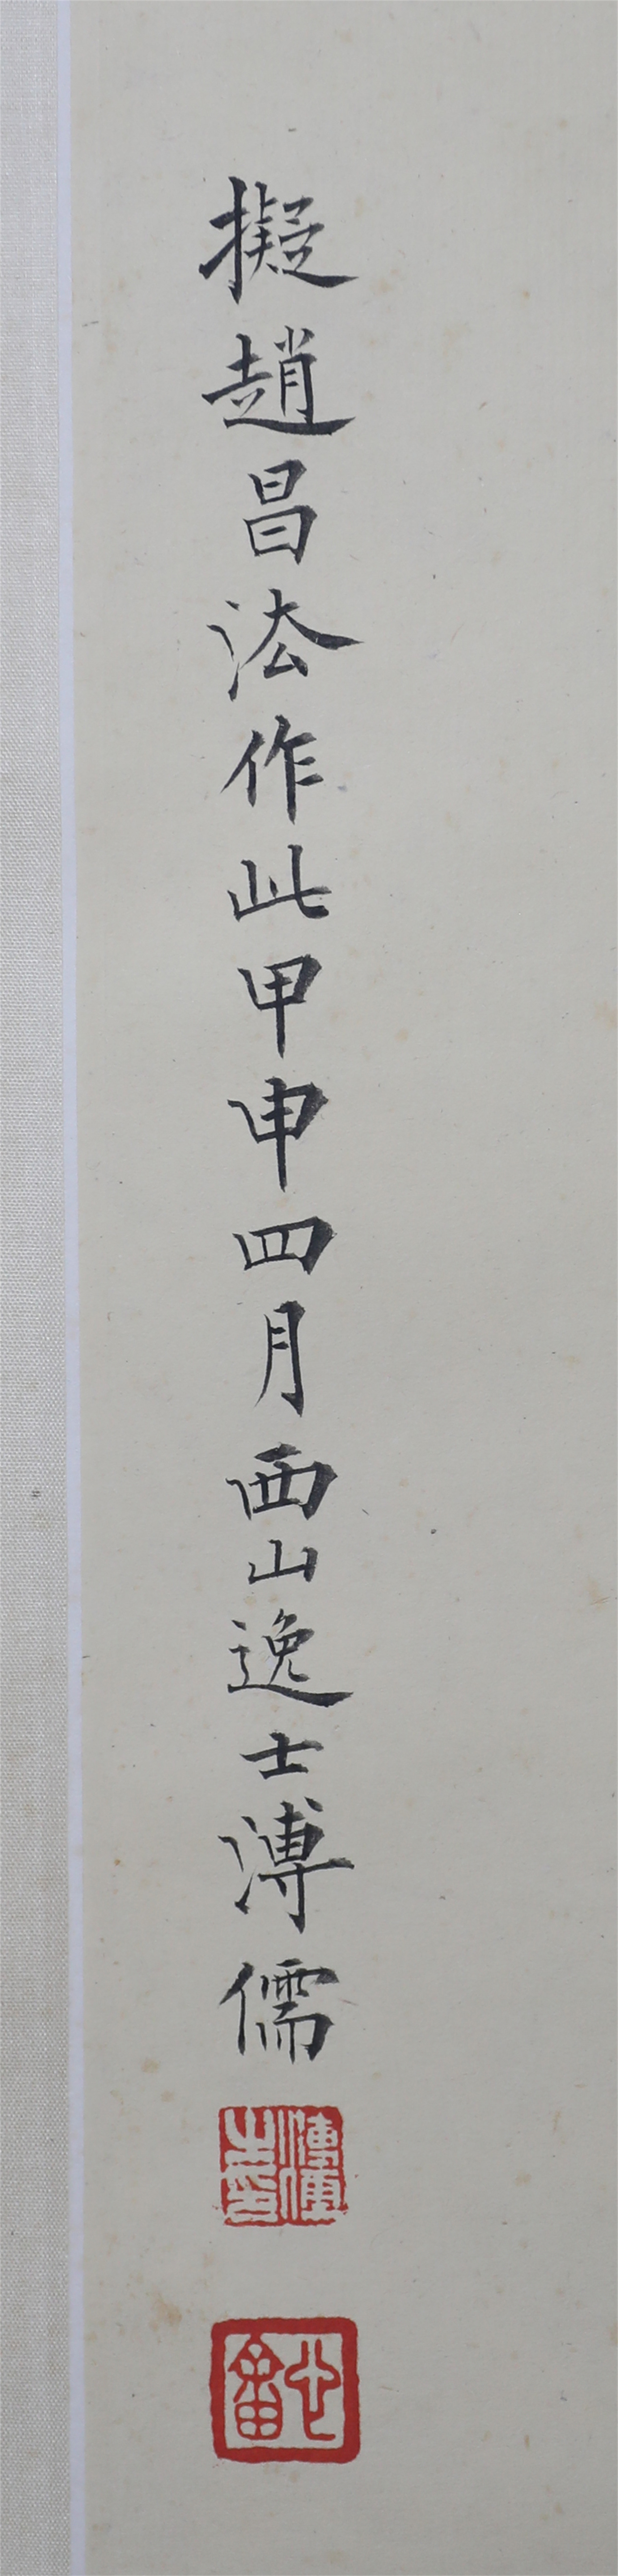 擬趙昌法作此甲申四月西山逸士溥儒
溥儒之印
心畬